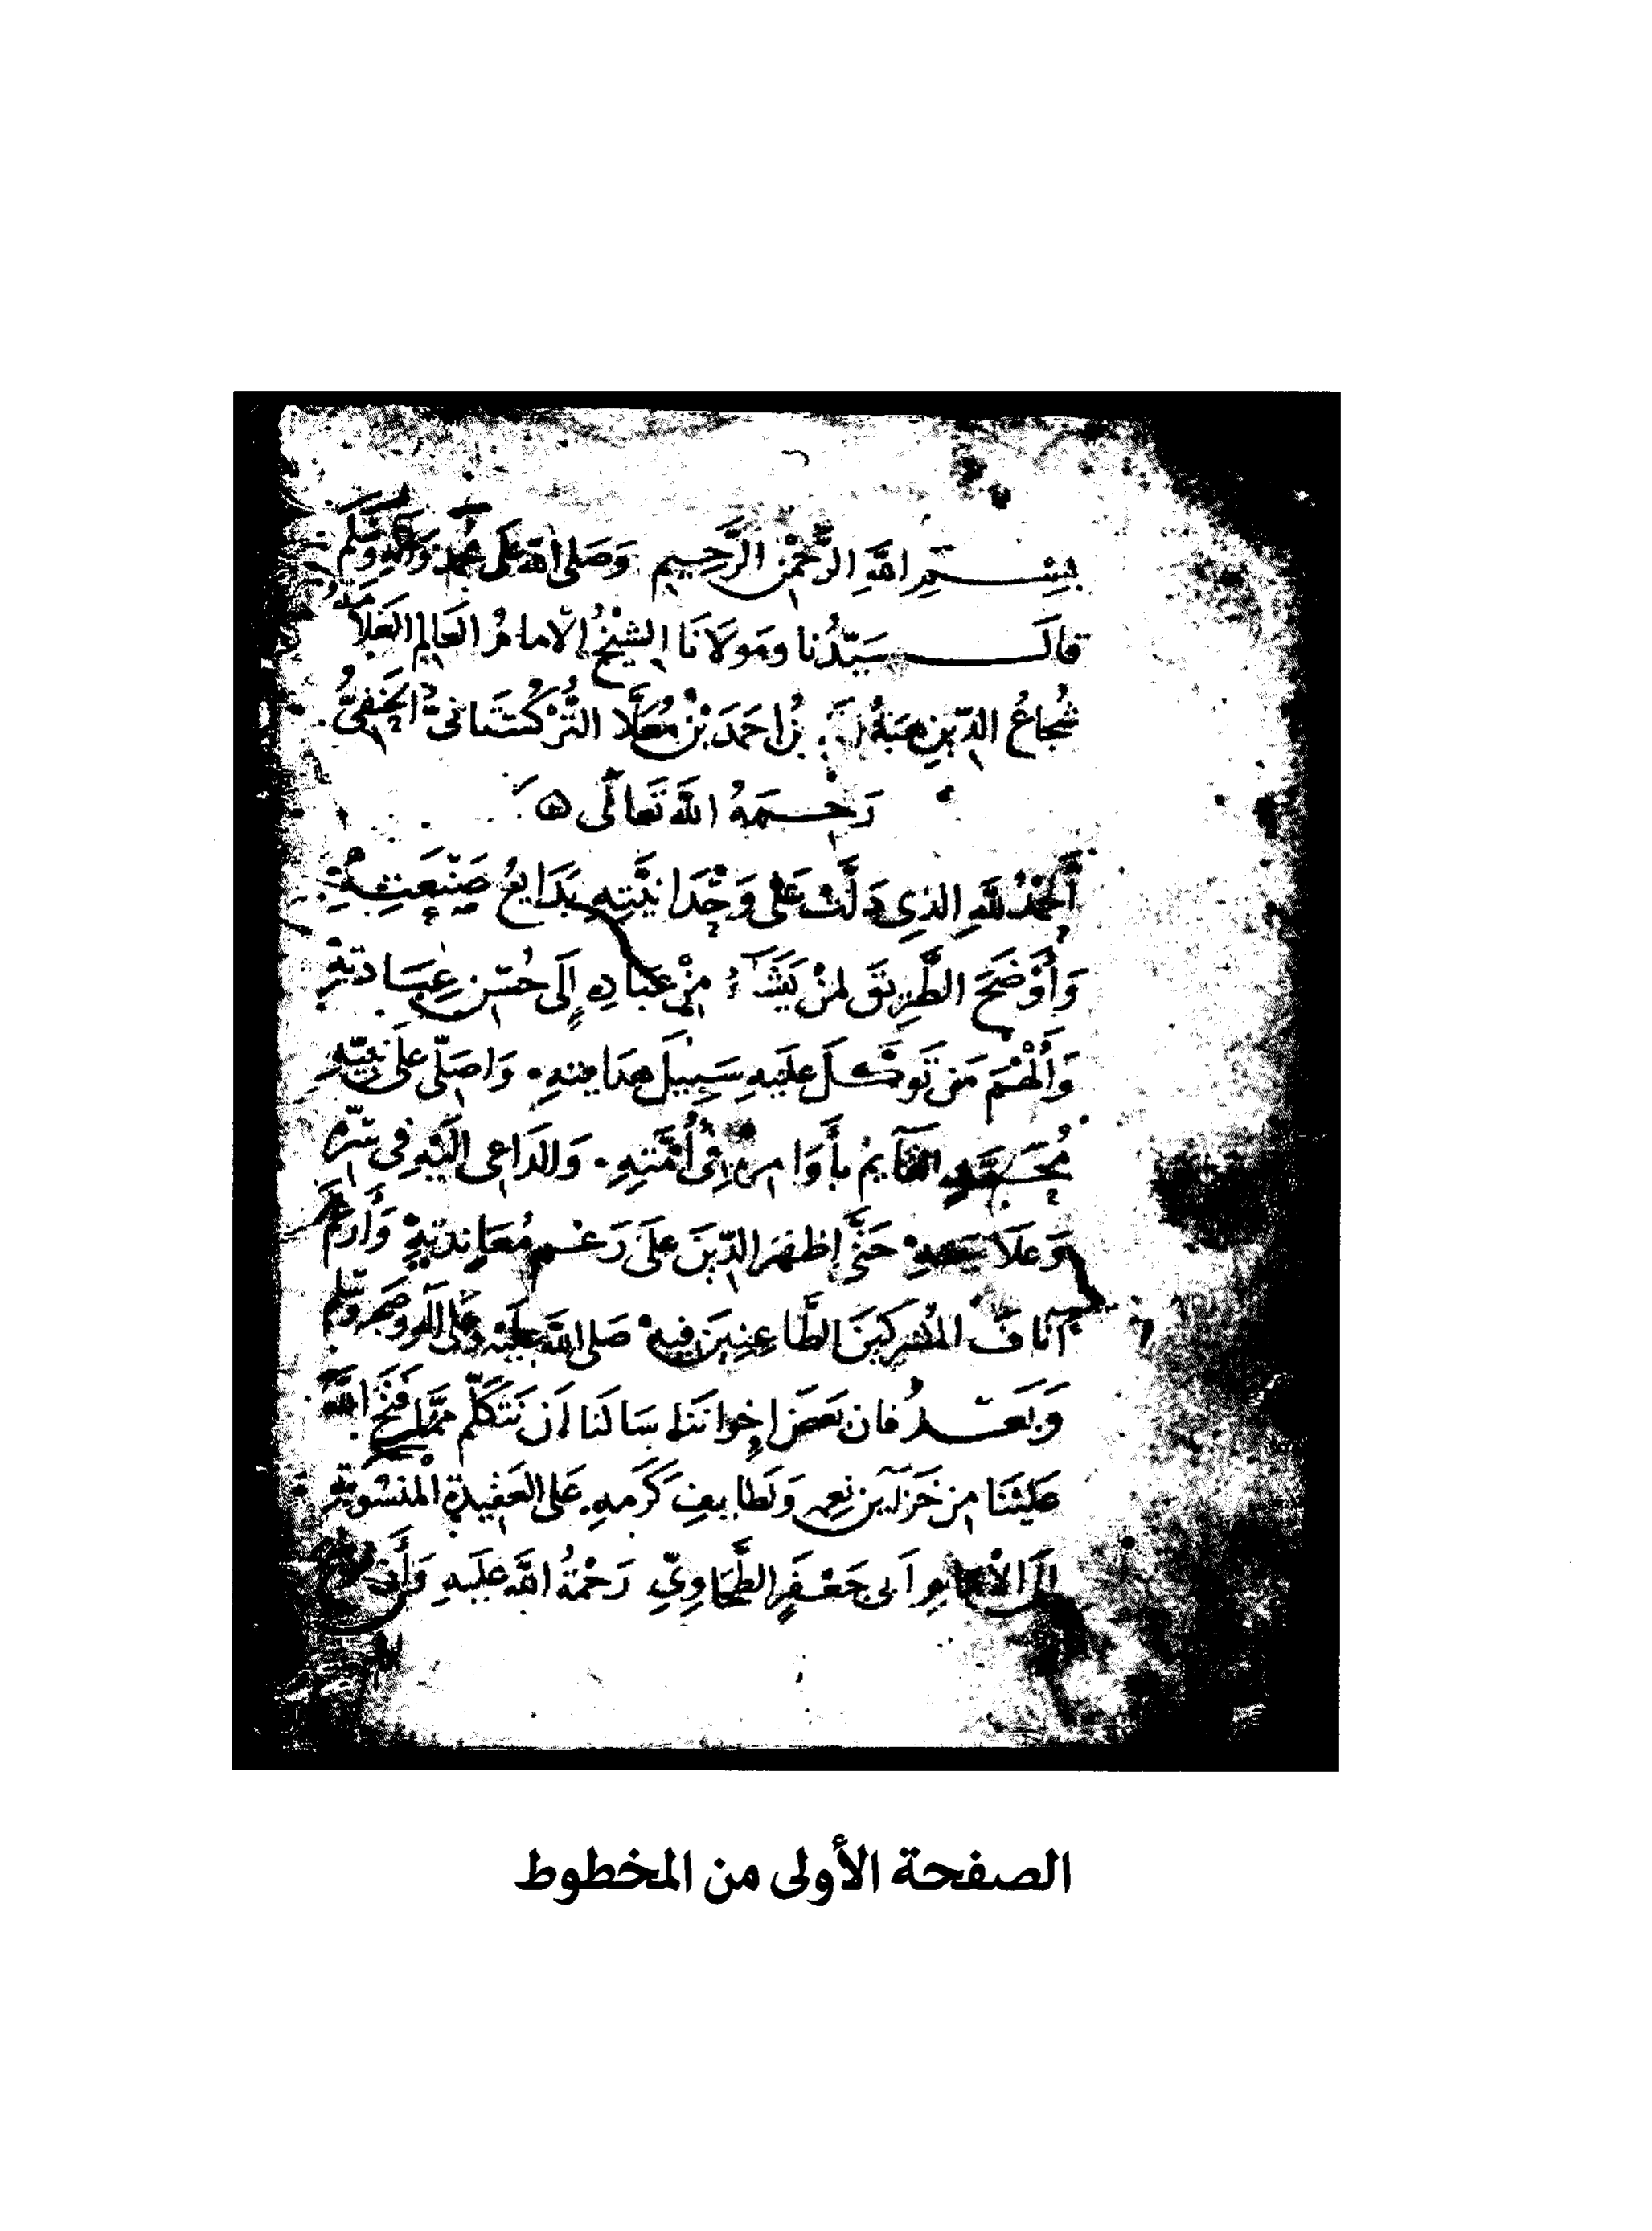 بِسْمِ اللَّهِ الرَّحْمٰنِ الرَّحِيمِ وَصَلى الله عَلَى محمد وَآله وَسَلم
قالَ سَيّدُنا ومَولَانَا الشيْخُ الامامُ العَالِم العَلامَة
شُجاعُ الدّين هبَةُ بْنُ احمَدَ بْنِ مُعَلَّا التُّرْكُسْتَانىُّ الحَنفِىُّ
رَحِمَهُ اللَّه تَعالَى
اَلْحَمْدُ لِلَّهِ الذِى دَلَّتْ عَلَى وَحْدَانِيَّتِهِ بَدَايعُ صَنْعَتِهِ
وَأَوْضَحَ الطَّرِيقَ لمَنْ يَشَآءُ مِنْ عِبَادِهِ إِلَى حُسْنِ عِبَادَتِهِ
وَأَلْهَمَ مَن تَوَكَّلَ عَلَيهِ سَبِيلَ هدَايتهِ. وَاصَلّى عَلَى نَبِيّهِ
مُحَمَّدٍ القَآيمُ بأَوَامِرِهِ فِى أُمَّتِهِ. وَالدَاعِى الَيْهِ فِى سِرّهِ
وَعلَانِيَتِهِ حَتَّى اظهَرَ الدّينَ عَلَى رَغم مُعَانِدِيهِ وَأَرْغَمَ
آنَافَ المُشرِكينَ الطَّاعِنِينَ فِيهِ صَلى اللهُ عَلَيْهِ وَعَلَى آلهِ وَصَحْبِهِ وَسَلم
وَبَعْدُ فان بَعضَ إخواننَا سَالنَا اَن نَتَكَلَّمَ ممَّا فَتَحَ اللَّهُ
عَلَيْنَا مِن خَزآيِنِ نِعمِهِ وَلَطَايفِ كَرَمهِ. عَلَى العَقِيدةِ المنسُوبَةِ
إلَى الاْمَامِ اَبى جَعْفَرٍ الطَّحَاوِيّ رَحْمَةُ اللَّه عَلَيهِ
الصفحة الأولى من المخطوط